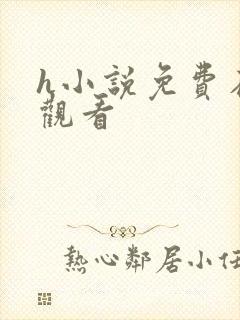 h小說免費
觀看
熱心鄰居小任